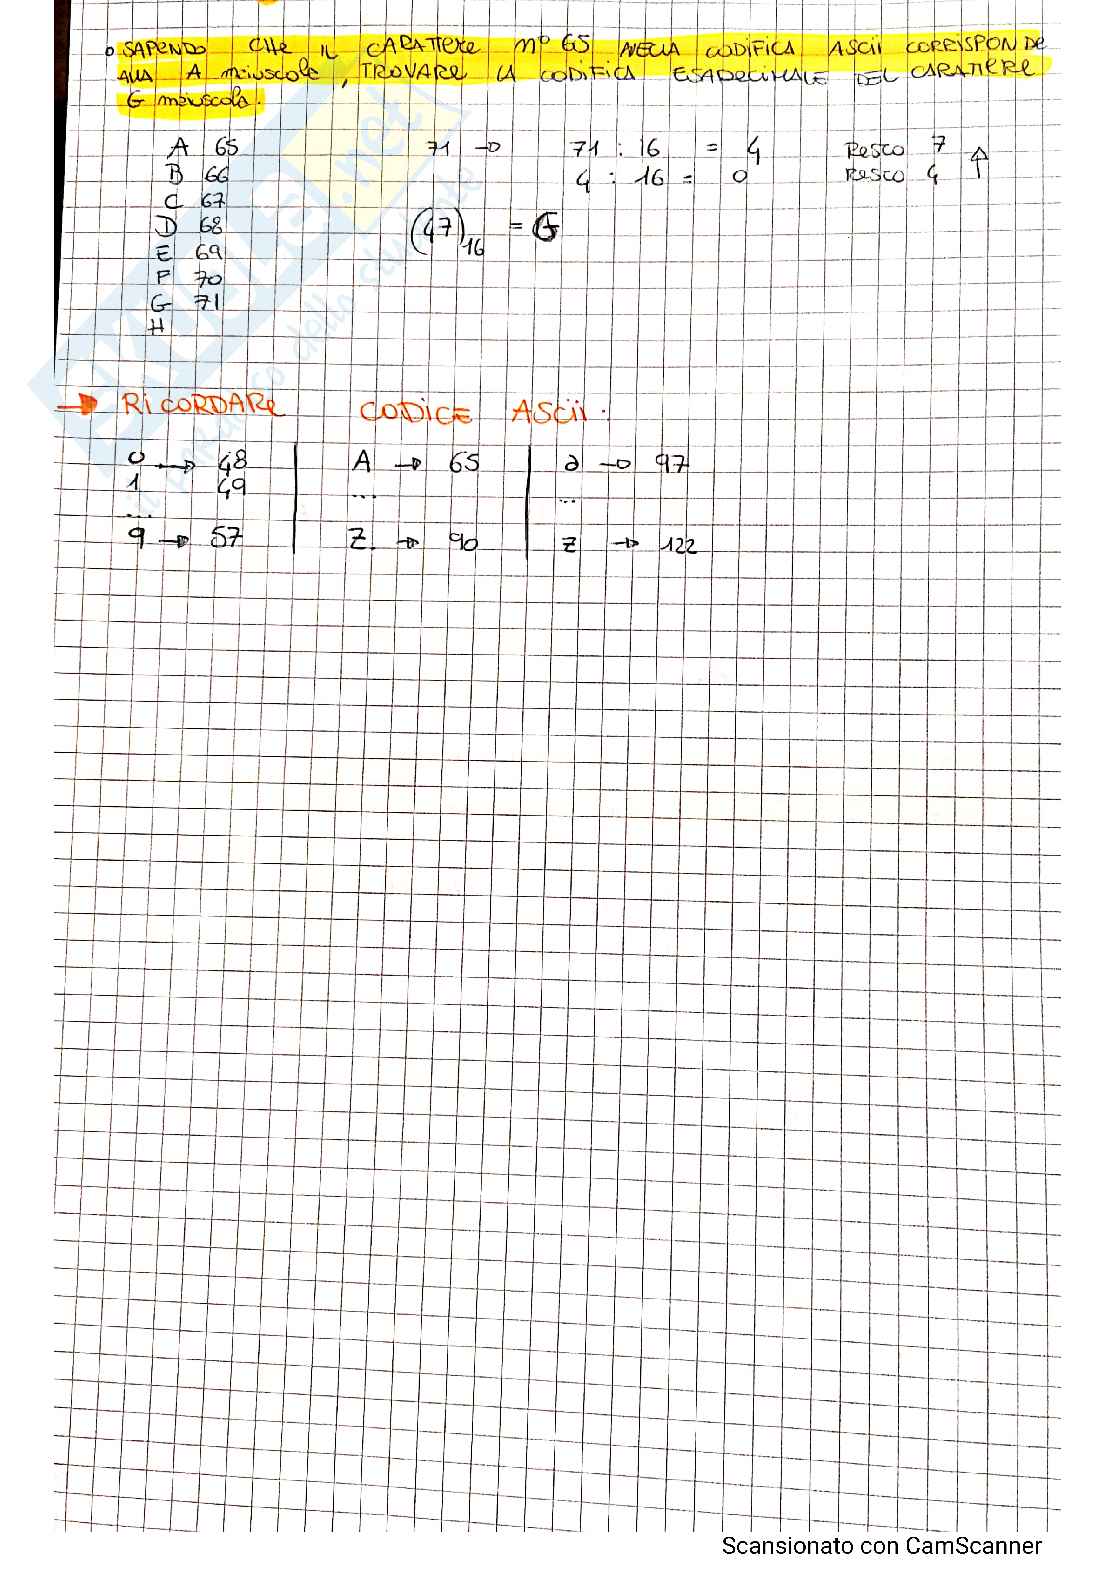 o SAPENDO CHE IL CARATTERE n° 65 NELLA CODIFICA ASCII CORRISPONDE
ALLA A maiuscola, TROVARE LA CODIFICA ESADECIMALE DEL CARATTERE
G maiuscola.
A 65 71 → 71 : 16 = 4 Resto 7 ↑
B 66 4 : 16 = 0 Resto 4
C 67
D 68 (47)16 = G
E 69
F 70
G 71
H
→ RICORDARE CODICE ASCII.
0 → 48 A → 65 a → 97
1 49 ... ...
...
9 → 57 Z → 90 z → 122
Scansionato con CamScanner